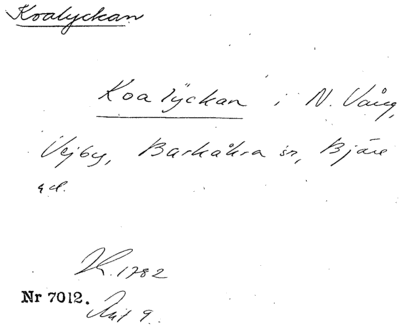 Koalyckan
Koalyckan i N. Vång,
Vejby, Barkåkra sn, Bjäre
hd.
1782
Nr 7012. Akt 9.